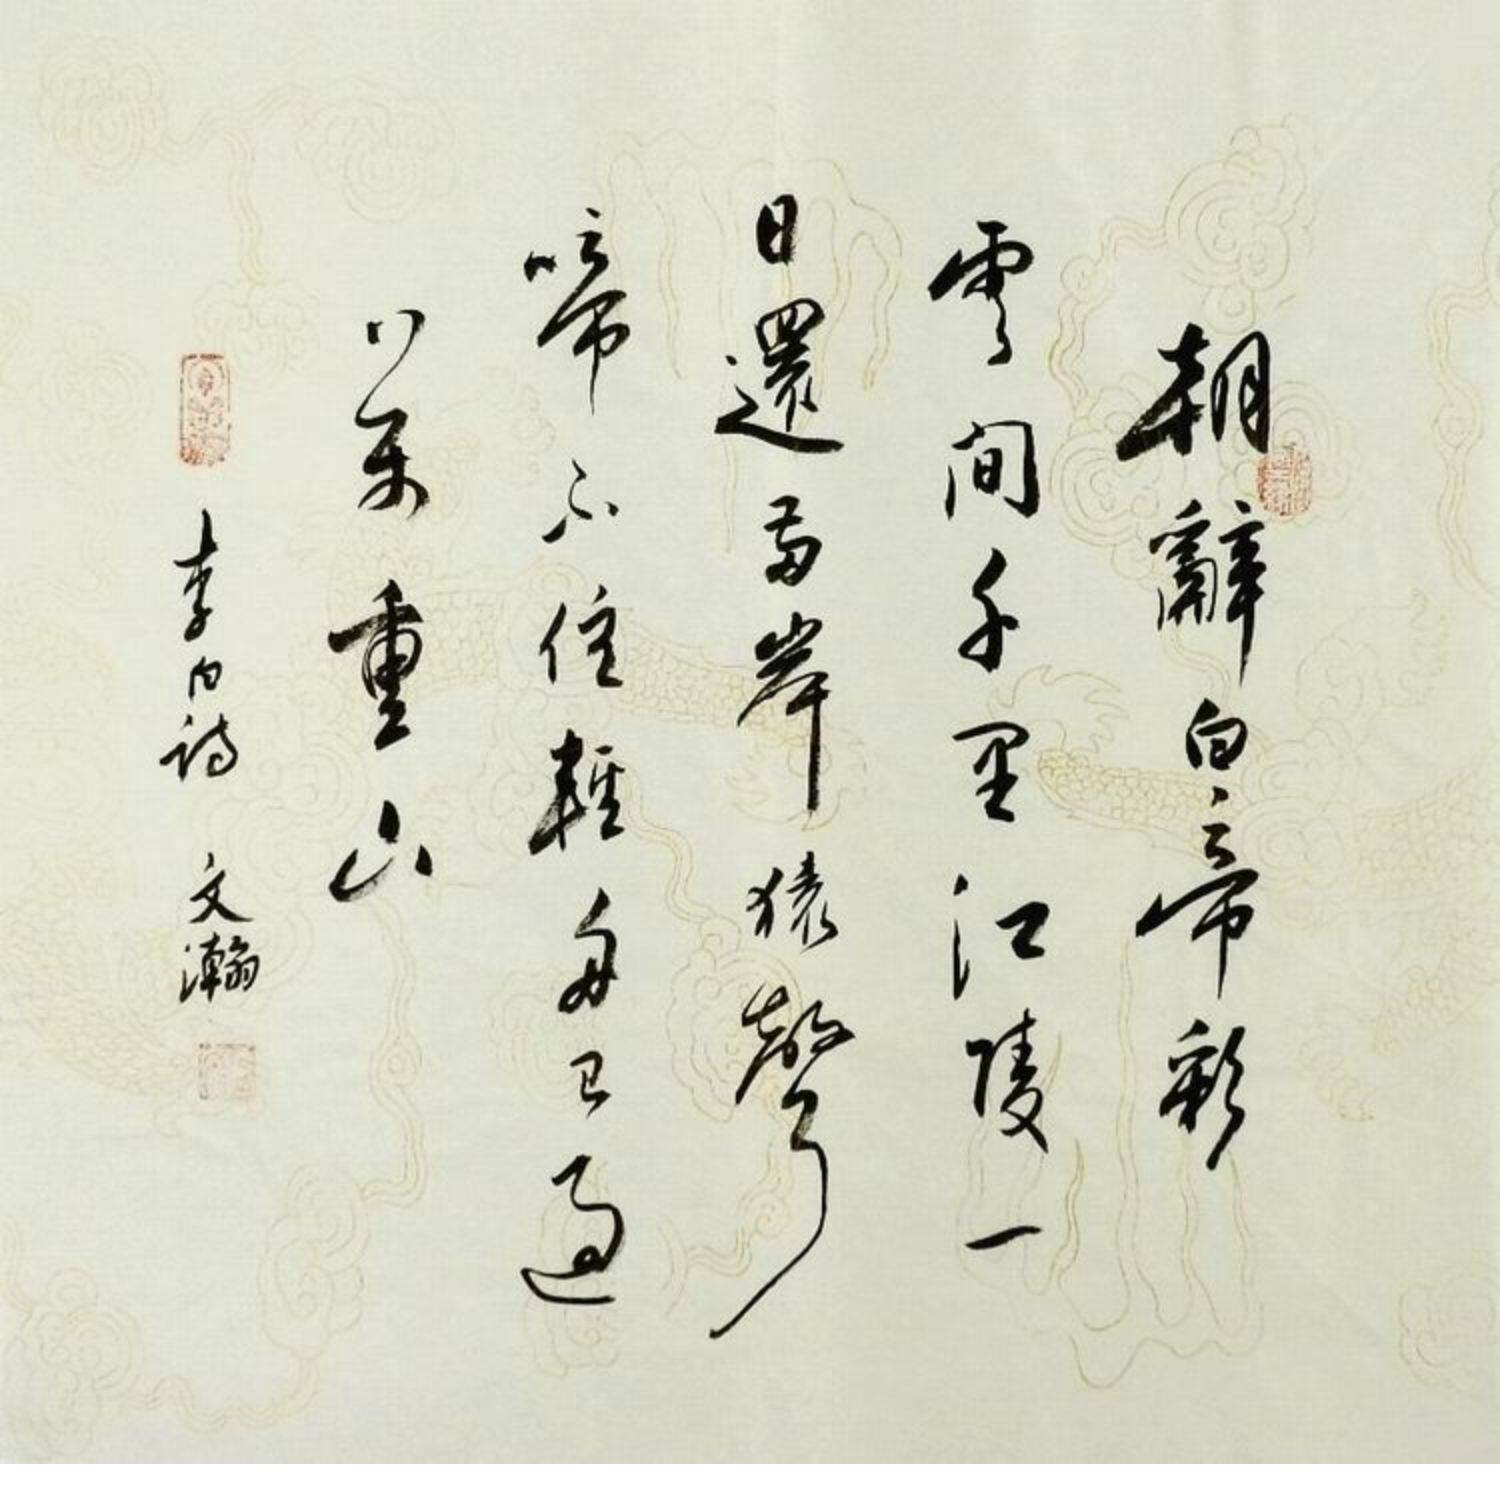 朝辭白帝彩
雲間千里江陵一
日還兩岸猿聲
啼不住輕舟已過
八萬重山
李白詩 文瀚